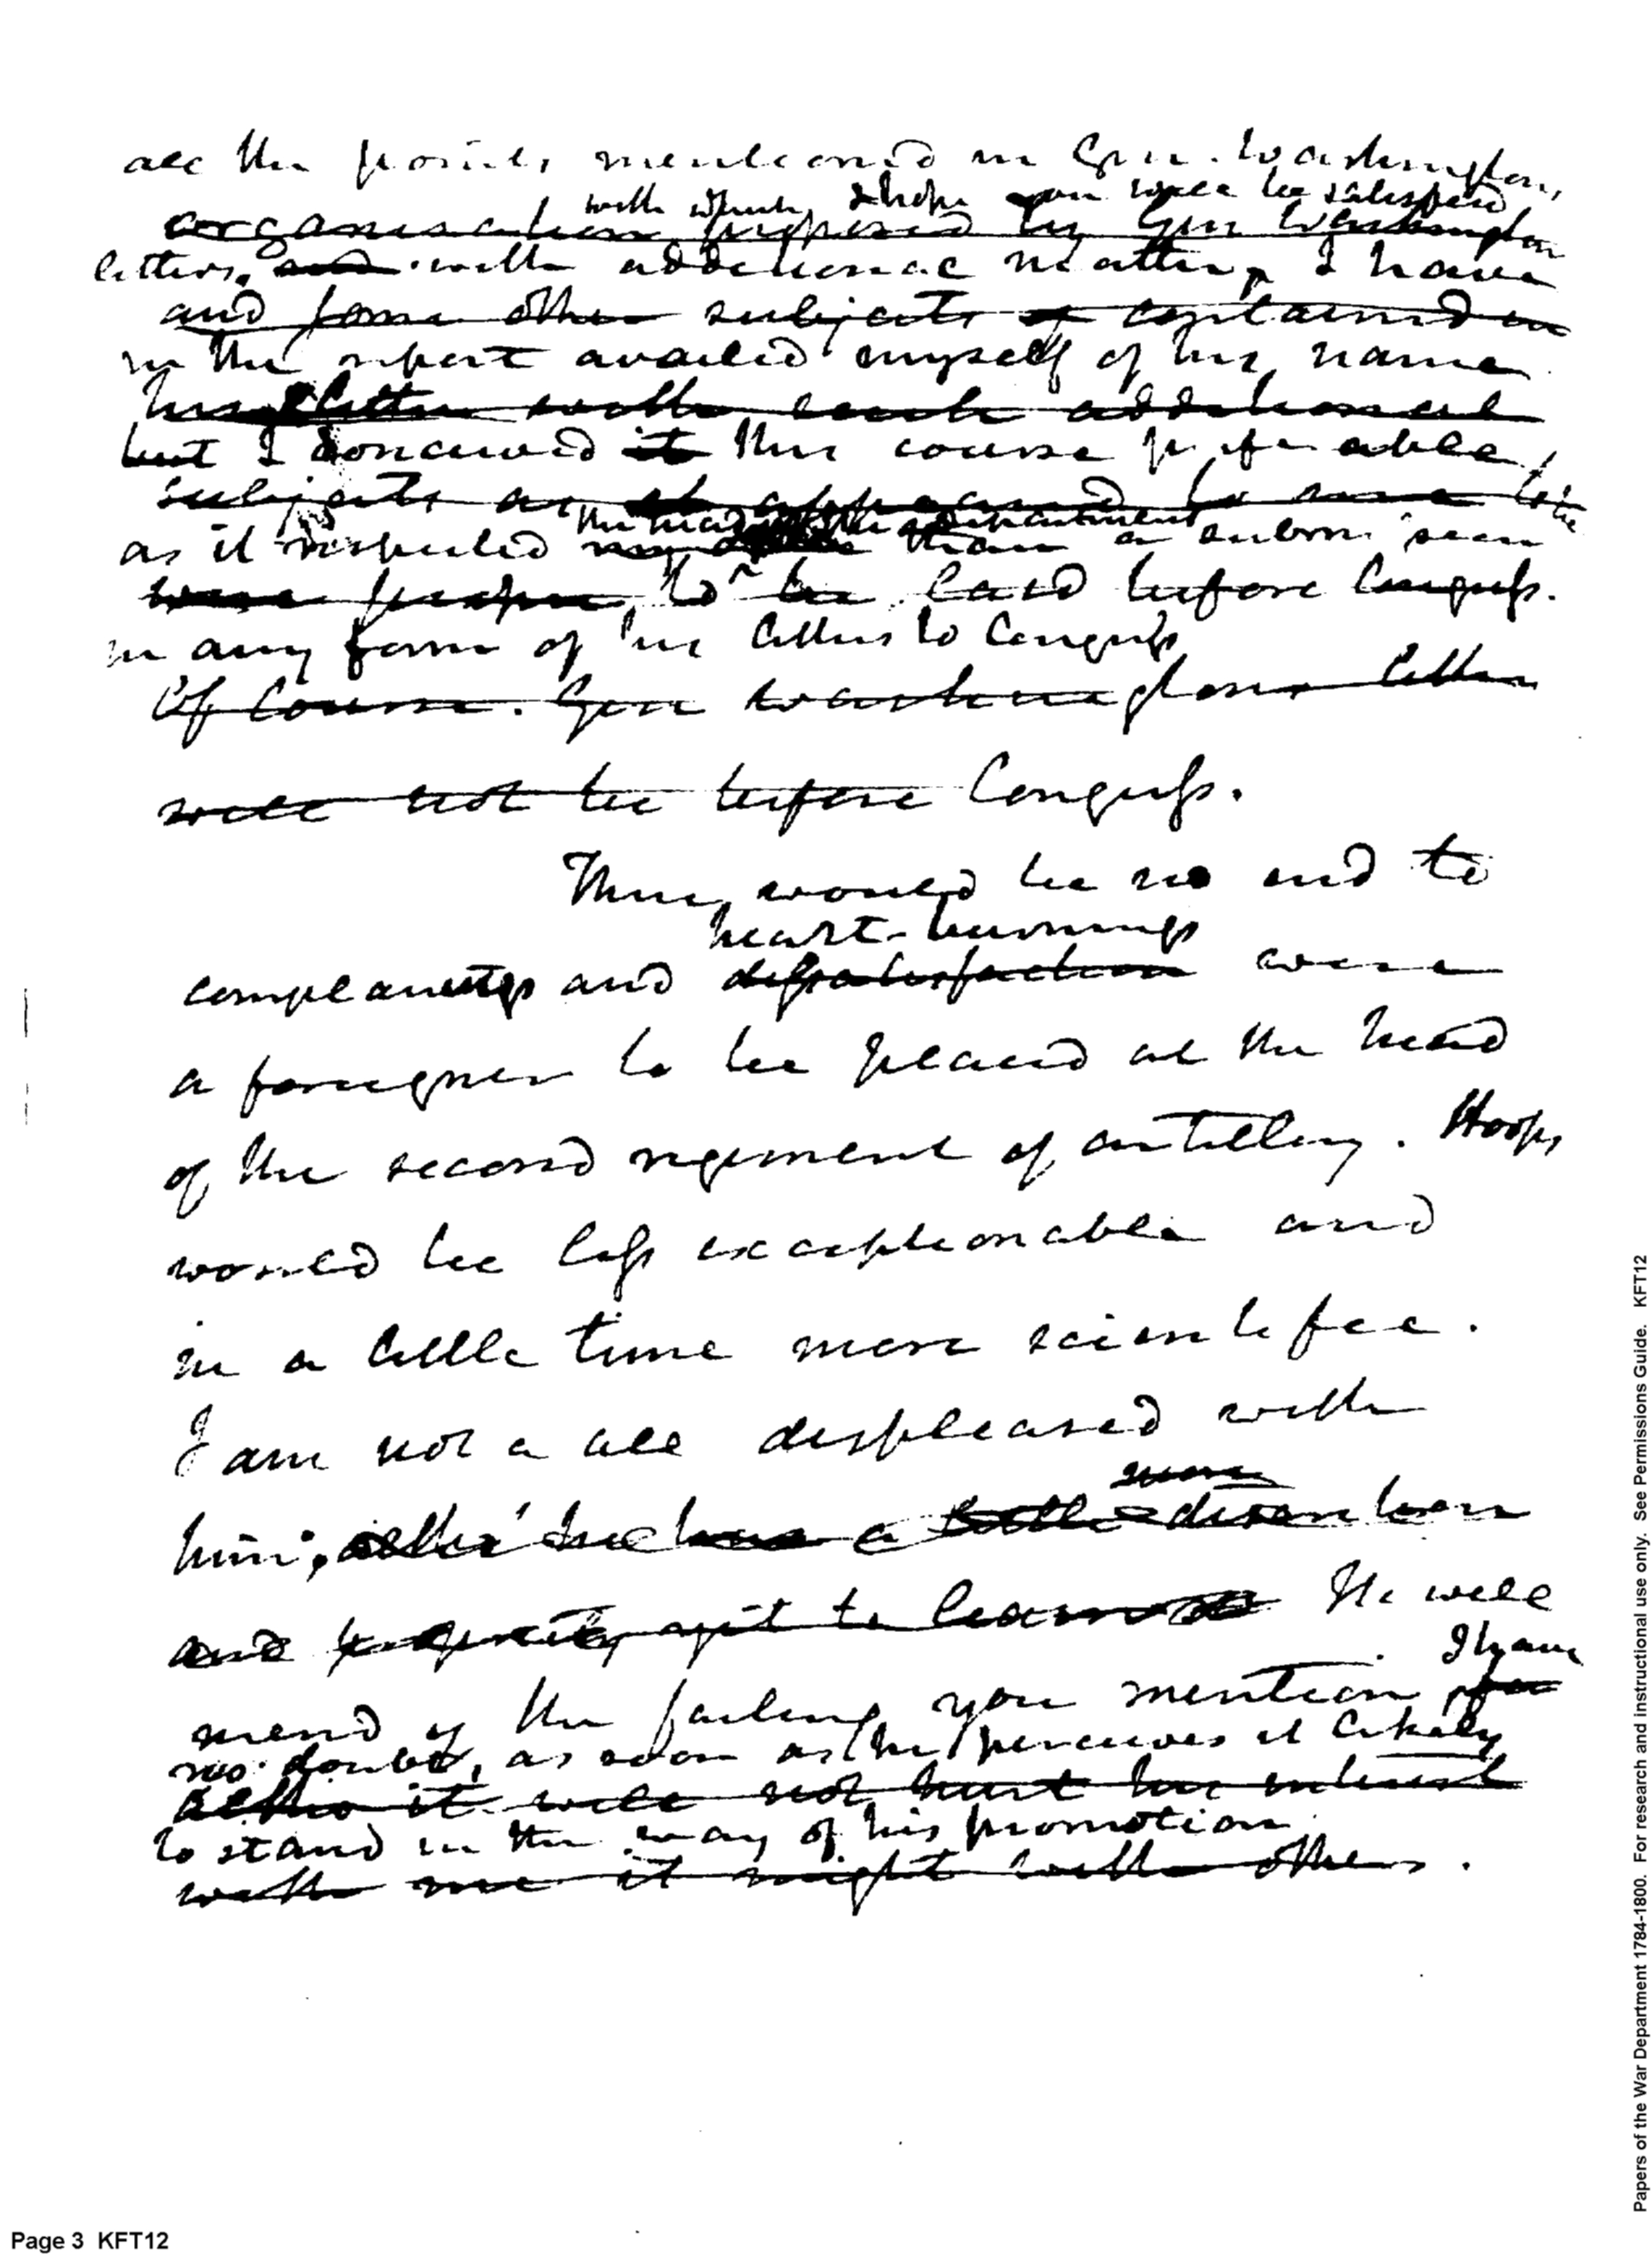 all the points mentioned in Gen. Washingtons
with which I hope you will be satisfied
organisation proposed by Gen Washington
letters, and with additional matter, I have
and some other subjects contained in
in the report availed myself of his name
his letter with such additional
but I conceived it this course preferable,
subjects as appeared to me to be
the head of the department
as it respected my than a submission
were proper to be laid before Congress.
in any form of letters to Congress
Of Course. Gen Washingtons letter
will not be before Congress.
There would be no end to
heart-burnings
complaints and dissatisfaction were
a foreigner to be placed at the head
of the second regiment of artillery. Hoops
would be less exceptionable and
in a little time more scientific.
I am not a all displeased with
more
him; altho' he has a little
and apt to learn He will
I have
mend of the failing you mention for
no doubt, as soon as he perceives it likely
altho it will not hurt his interest
to stand in the way of his promotion
with me it might with others.
Page 3 KFT12
Papers of the War Department 1784-1800. For research and instructional use only. See Permissions Guide. KFT12